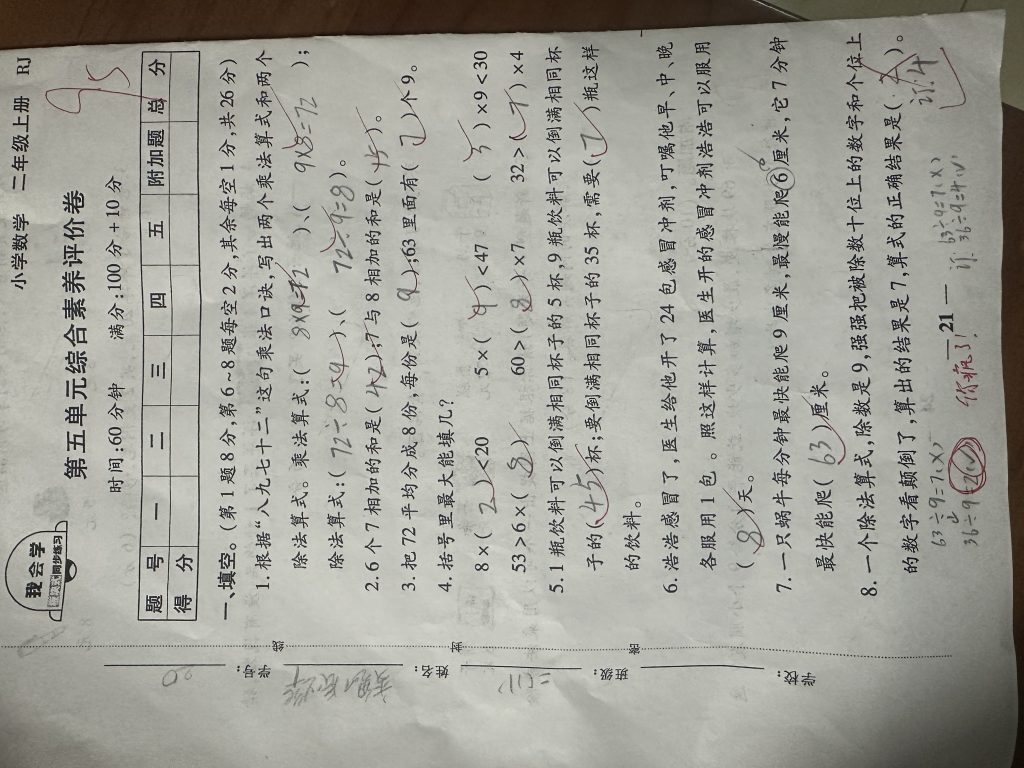 我会学
同步练习
小学数学 二年级上册 RJ
第五单元综合素养评价卷
时间:60分钟 满分:100分+10分
95
题号 一 二 三 四 五 附加题 总分
得分
学号:
20
姓名:
班级:
学校:
线
封
密
一、填空。(第1题8分,第6~8题每空2分,其余每空1分,共26分)
1.根据“八九七十二”这句乘法口诀,写出两个乘法算式和两个
除法算式。乘法算式:( 8×9=72 )、( 9×8=72 );
除法算式:( 72÷8=9 )、( 72÷9=8 )。
2.6个7相加的和是( 42 );7与8相加的和是( 15 )。
3.把72平均分成8份,每份是( 9 );63里面有( 7 )个9。
4.括号里最大能填几?
8×( 2 )<20 5×( 9 )<47 ( 3 )×9<30
53>6×( 8 ) 60>( 8 )×7 32>( 7 )×4
5.1瓶饮料可以倒满相同杯子的5杯,9瓶饮料可以倒满相同杯
子的( 45 )杯;要倒满相同杯子的35杯,需要( 7 )瓶这样
的饮料。
6.浩浩感冒了,医生给他开了24包感冒冲剂,叮嘱他早、中、晚
各服用1包。照这样计算,医生开的感冒冲剂浩浩可以服用
( 8 )天。
7.一只蜗牛每分钟最快能爬9厘米,最慢能爬6厘米,它7分钟
最快能爬( 63 )厘米。
8.一个除法算式,除数是9,强强把被除数十位上的数字和个位上
的数字看颠倒了,算出的结果是7,算式的正确结果是( )。
订:4
63÷9=7(×)
36÷9=
63÷9=7(×)
订 36÷9=4(√)
— 21 —